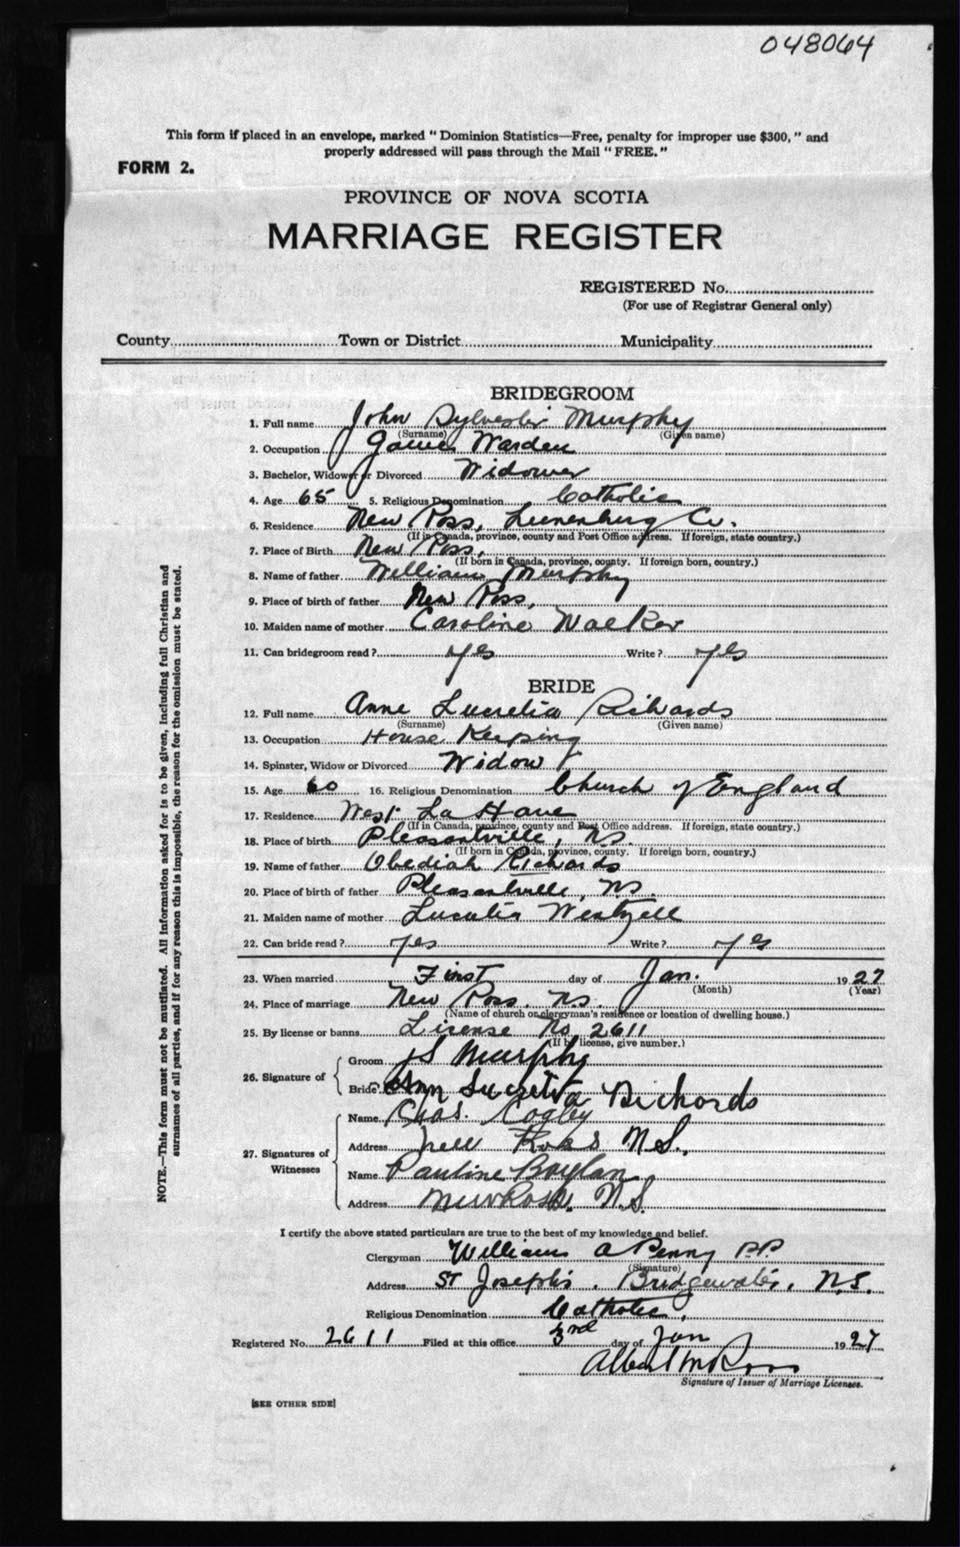 048064
This form if placed in an envelope, marked "Dominion Statistics—Free, penalty for improper use $300," and
properly addressed will pass through the Mail "FREE."
FORM 2.
PROVINCE OF NOVA SCOTIA
MARRIAGE REGISTER
REGISTERED No.
(For use of Registrar General only)
County Town or District Municipality
BRIDEGROOM
1. Full name John Sylvester Murphy
(Surname) (Given name)
2. Occupation Game Warden
3. Bachelor, Widower or Divorced Widower
4. Age 65 5. Religious Denomination Catholic
6. Residence New Ross, Lunenburg Co.
(If in Canada, province, county and Post Office address. If foreign, state country.)
7. Place of Birth New Ross,
(If born in Canada, province, county. If foreign born, country.)
8. Name of father William Murphy
9. Place of birth of father New Ross,
10. Maiden name of mother Caroline Walker
11. Can bridegroom read? yes Write? yes
BRIDE
12. Full name Anne Lucretia Richards
(Surname) (Given name)
13. Occupation House Keeping
14. Spinster, Widow or Divorced Widow
15. Age 60 16. Religious Denomination Church of England
17. Residence West La Have
(If in Canada, province, county and Post Office address. If foreign, state country.)
18. Place of birth Pleasantville, NS.
(If born in Canada, province, county. If foreign born, country.)
19. Name of father Obediah Richards
20. Place of birth of father Pleasantville, NS.
21. Maiden name of mother Lucretia
22. Can bride read? yes Write? yes
23. When married First day of Jan. 1927
(Month) (Year)
24. Place of marriage New Ross. NS.
(Name of church or clergyman's residence or location of dwelling house.)
25. By license or banns License No 2611
(If by license, give number.)
26. Signature of
Groom JS Murphy
Bride Ann Lucretia Richards
27. Signatures of Witnesses
Name Chas. Cogley
Address New Ross N.S.
Name Pauline Boylan
Address New Ross. N.S.
I certify the above stated particulars are true to the best of my knowledge and belief.
Clergyman William A Penny P.P.
(Signature)
Address St Joseph's, Bridgewater, N.S.
Religious Denomination Catholic,
Registered No. 2611 Filed at this office 3rd day of Jan 1927
Albert M Ross
Signature of Issuer of Marriage Licenses.
[SEE OTHER SIDE]
NOTE.—This form must not be mutilated. All information asked for is to be given, including full Christian and
surnames of all parties, and if for any reason this is impossible, the reason for the omission must be stated.